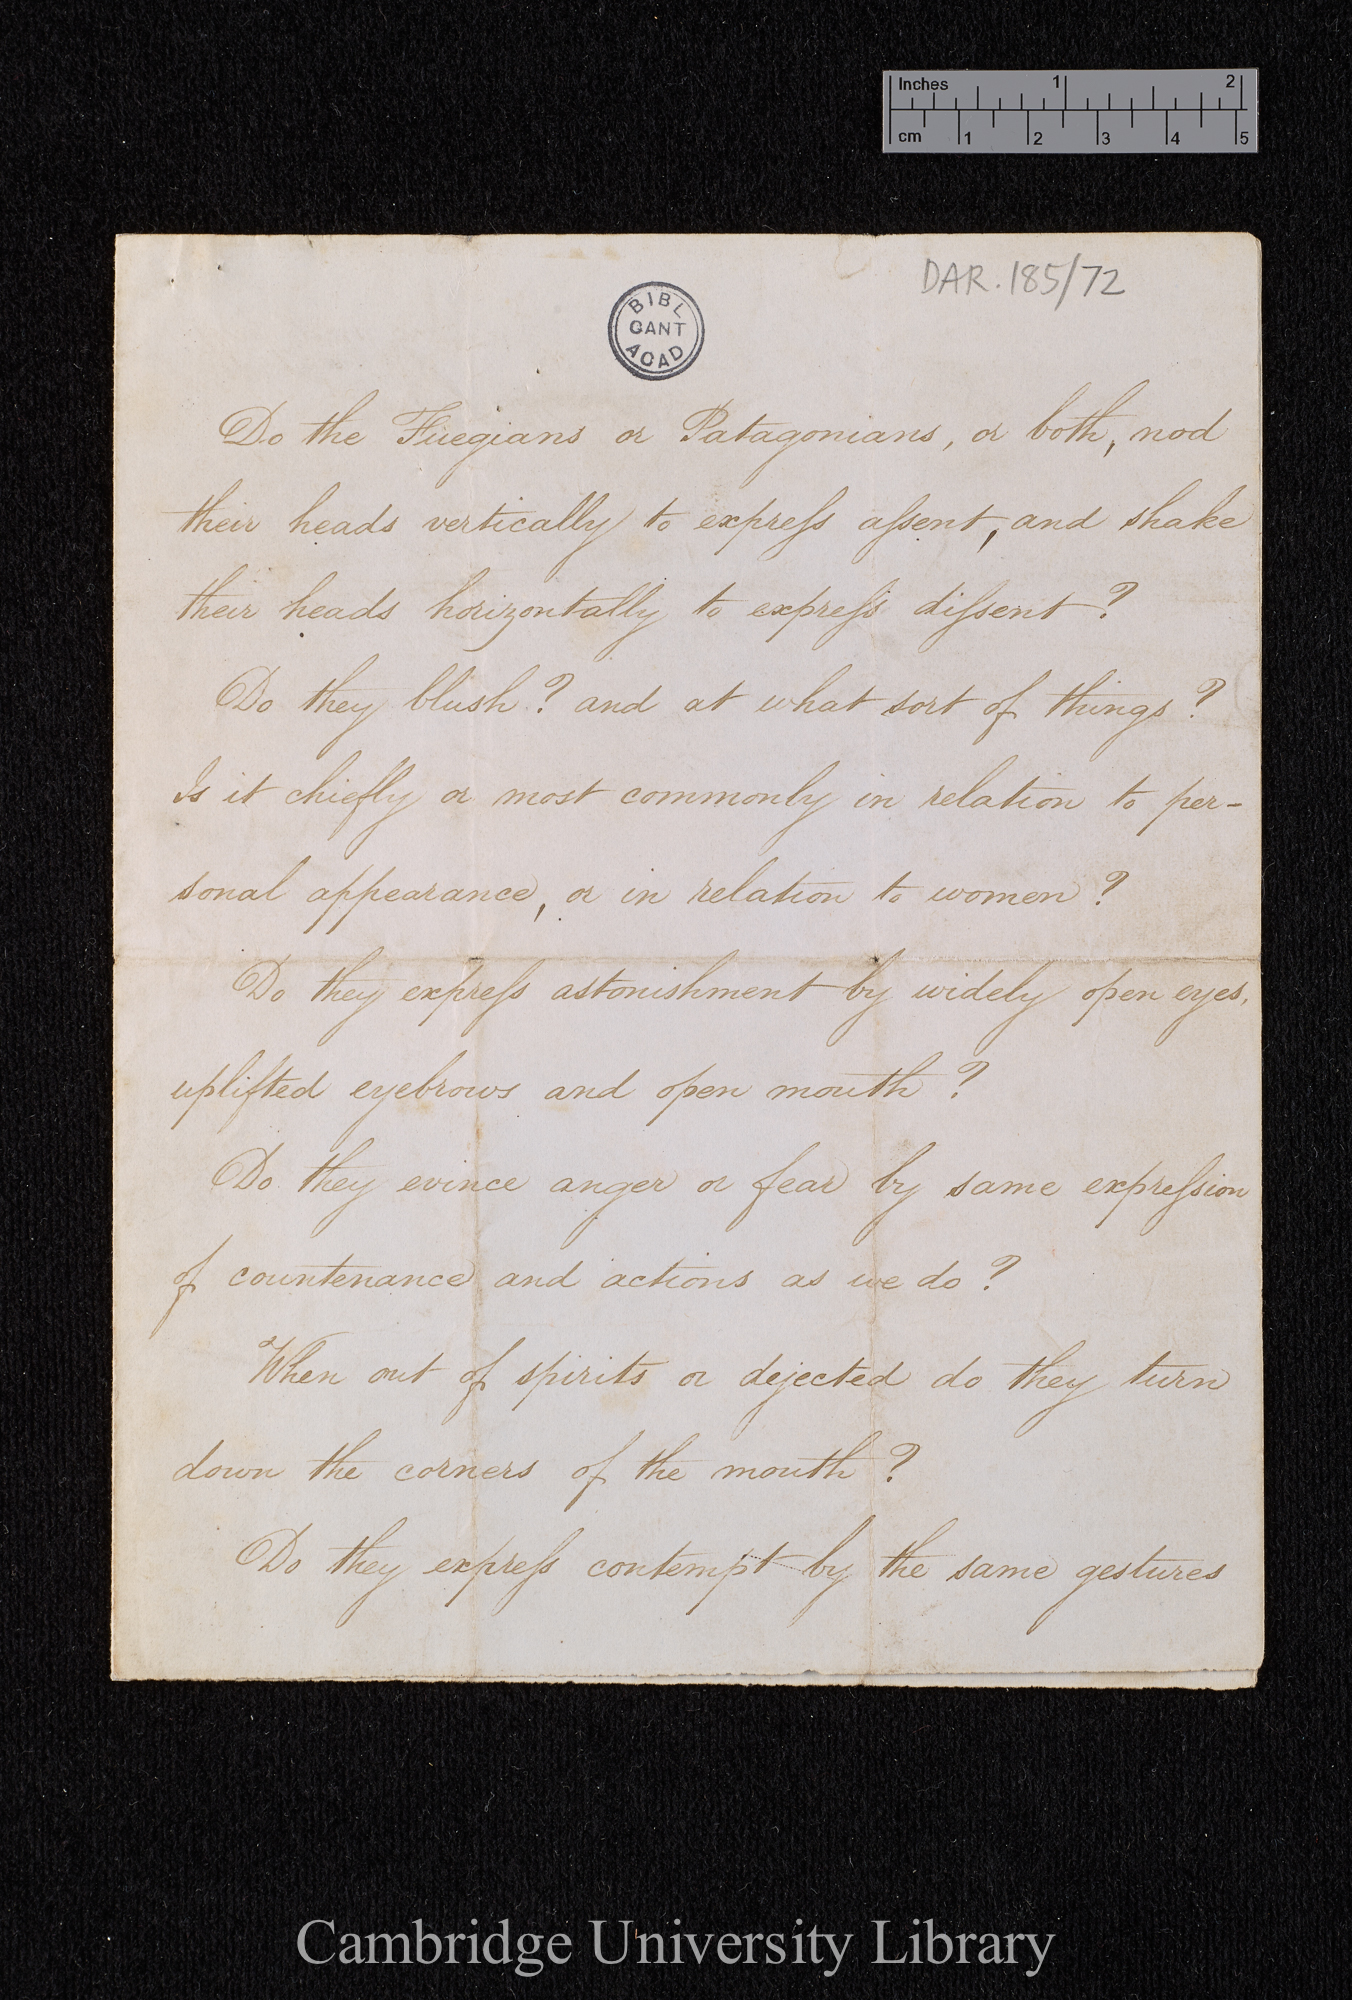 Inches 1 2
cm 1 2 3 4 5
DAR.185/72
BIBL
CANT
ACAD
Do the Fuegians or Patagonians, or both, nod
their heads vertically to expreſs aſsent, and shake
their heads horizontally to expreſs diſsent?
Do they blush? and at what sort of things?
Is it chiefly or most commonly in relation to per-
sonal appearance, or in relation to women?
Do they expreſs astonishment by widely open eyes,
uplifted eyebrows and open mouth?
Do they evince anger or fear by same expreſsion
of countenance and actions as we do?
When out of spirits or dejected do they turn
down the corners of the mouth?
Do they expreſs contempt by the same gestures
Cambridge University Library